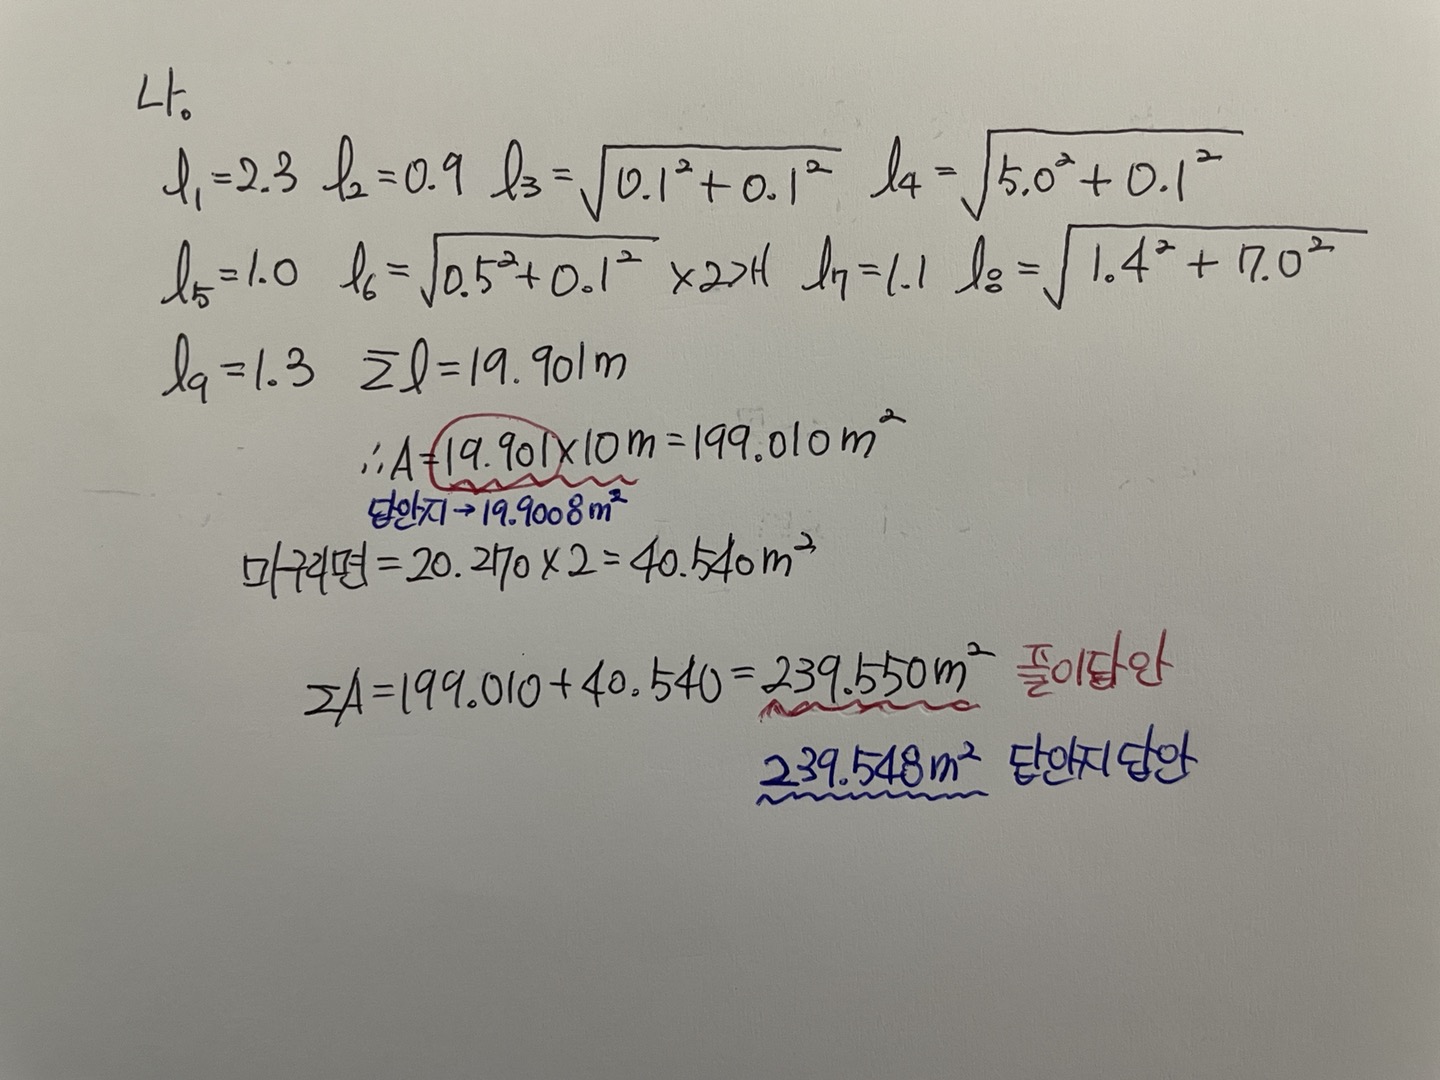 나.
l₁=2.3 l₂=0.9 l₃=√(0.1²+0.1²) l₄=√(5.0²+0.1²)
l₅=1.0 l₆=√(0.5²+0.1²) ×2개 l₇=1.1 l₈=√(1.4²+7.0²)
l₉=1.3 Σl=19.901m
∴A=19.901×10m=199.010m²
답안지→19.9008m²
마구리면=20.270×2=40.540m²
ΣA=199.010+40.540=239.550m² 풀이답안
239.548m² 답안지답안